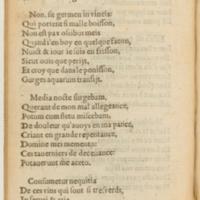 Non, se germen in vineis:
Qui portent si malle boisson,
Non est pax ossibus meis
Quand i'en boy en quelque façon,
Nuict & iour ie suis en frisson,
Sicut ouis que perijt,
Et croy que dans le ponisson,
Gurges aquarum transijt.
Media nocte surgebam,
Querant de mon mal allegeance,
Potum cum fletu miscebam,
De douleur qu'auoys en ma pance,
Criant en grande repentance,
Domine mei memento:
Ces tauerniers de deceuance:
Potauerunt me aceto.
Consumetur nequitia
De ces vins qui sont si tres verds,